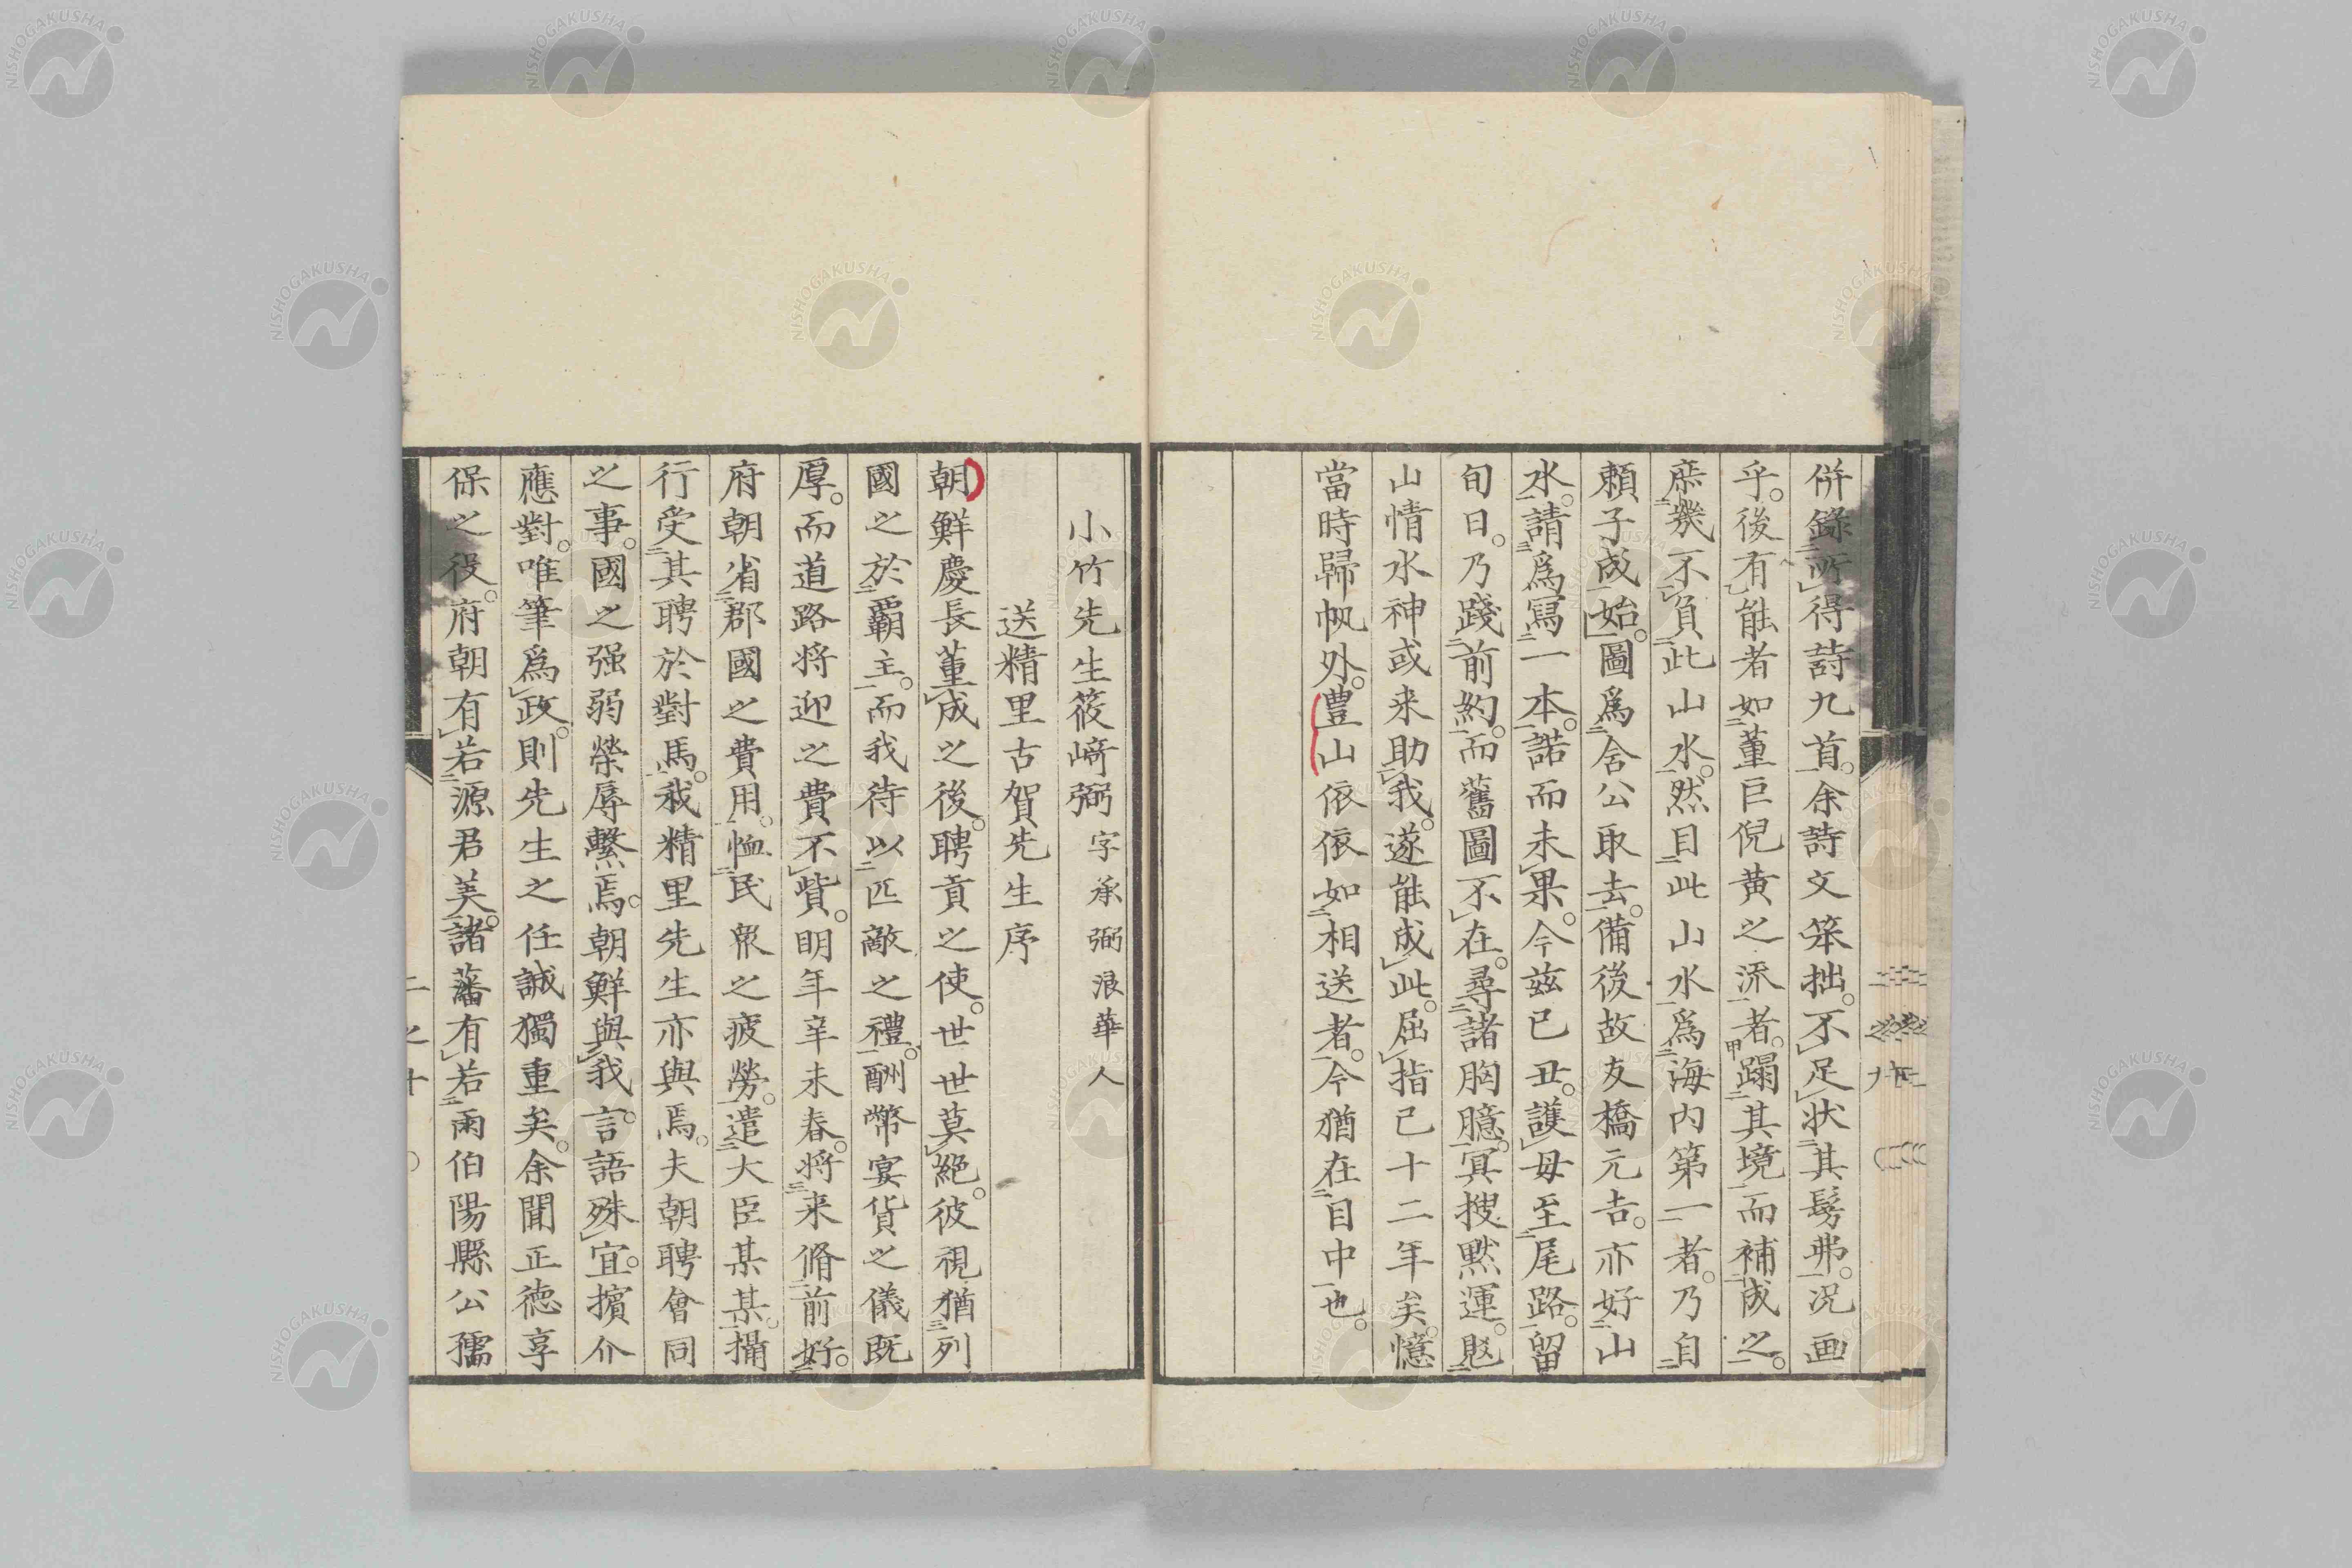 併錄所得詩九首。余詩文笨拙。不足狀其髣弗。況画
乎。後有能者如董巨倪黄之派者。蹋其境而補成之。
庶幾不負此山水。然目此山水爲海内第一者。乃自
頼子成始。圖爲舎公取去。備後故友橋元吉。亦好山
水。請爲冩一本。諾而未果。今玆己丑。護母至尾路。留
旬日。乃踐前約。而舊圖不在。尋諸胸臆。冥搜黙運。䰟
山情水神或来助我。遂能成此。屈指已十二年矣。憶
當時歸帆外。豊山依依如相送者。今猶在目中也。
小竹先生筱﨑弼 字承弼浪華人
送精里古賀先生序
朝鮮慶長董成之後。聘貢之使。世世莫絕。彼視猶列
國之於覇主。而我待以匹敵之禮。酬幣宴貨之儀既
厚。而道路将迎之費不貲。明年辛未春。将来脩前好。
府朝省郡國之費用。恤民衆之疲勞。遣大臣某某。攝
行受其聘於對馬。我精里先生亦與焉。夫朝聘會同
之事。國之强弱榮辱繫焉。朝鮮與我言語殊宜。擯介
應對。唯筆爲政。則先生之任誠獨重矣。余聞正徳享
保之役。府朝有若源君美。諸藩有若雨伯陽縣公孺
二之十